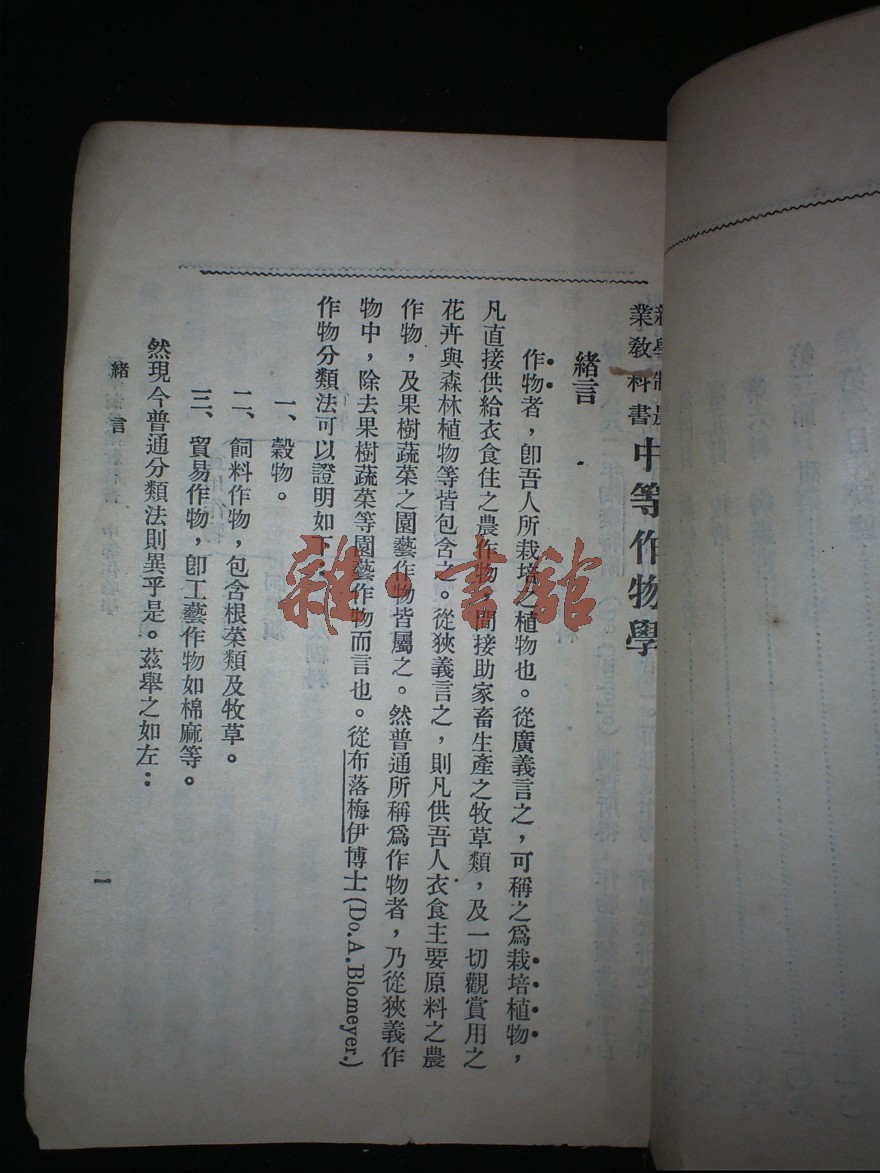 新學制農
業教科書
中等作物學
緒言
作物者，卽吾人所栽培之植物也。從廣義言之，可稱之爲栽培植物，
凡直接供給衣食住之農作物，間接助家畜生產之牧草類，及一切觀賞用之
花卉與森林植物等皆包含之。從狹義言之，則凡供吾人衣食主要原料之農
作物，及果樹蔬菜之園藝作物皆屬之。然普通所稱爲作物者，乃從狹義作
物中，除去果樹蔬菜等園藝作物而言也。從布落梅伊博士(Do.A.Blomeyer.)
作物分類法可以證明如下：
一、穀物。
二、飼料作物，包含根菜類及牧草。
三、貿易作物，卽工藝作物如棉麻等。
然現今普通分類法則異乎是。茲舉之如左：
緒言
一
雜·書館